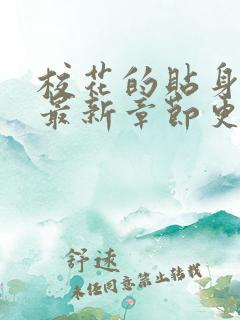 校花的贴身
最新章节更
舒速
未经同意禁止转载